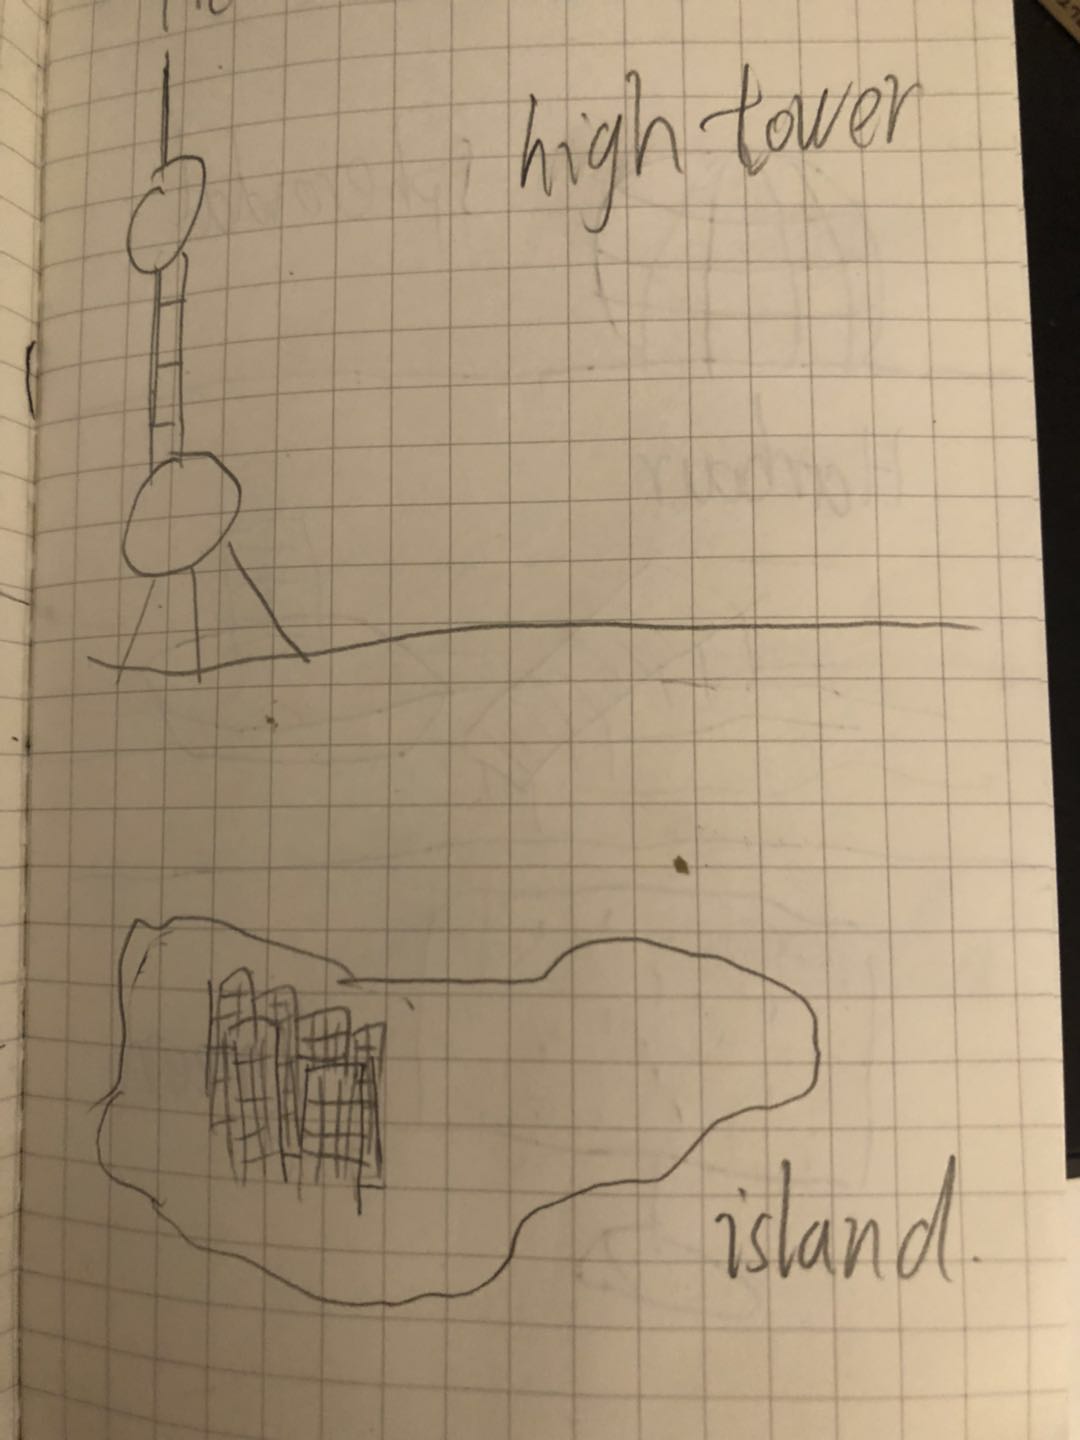 high tower
island.